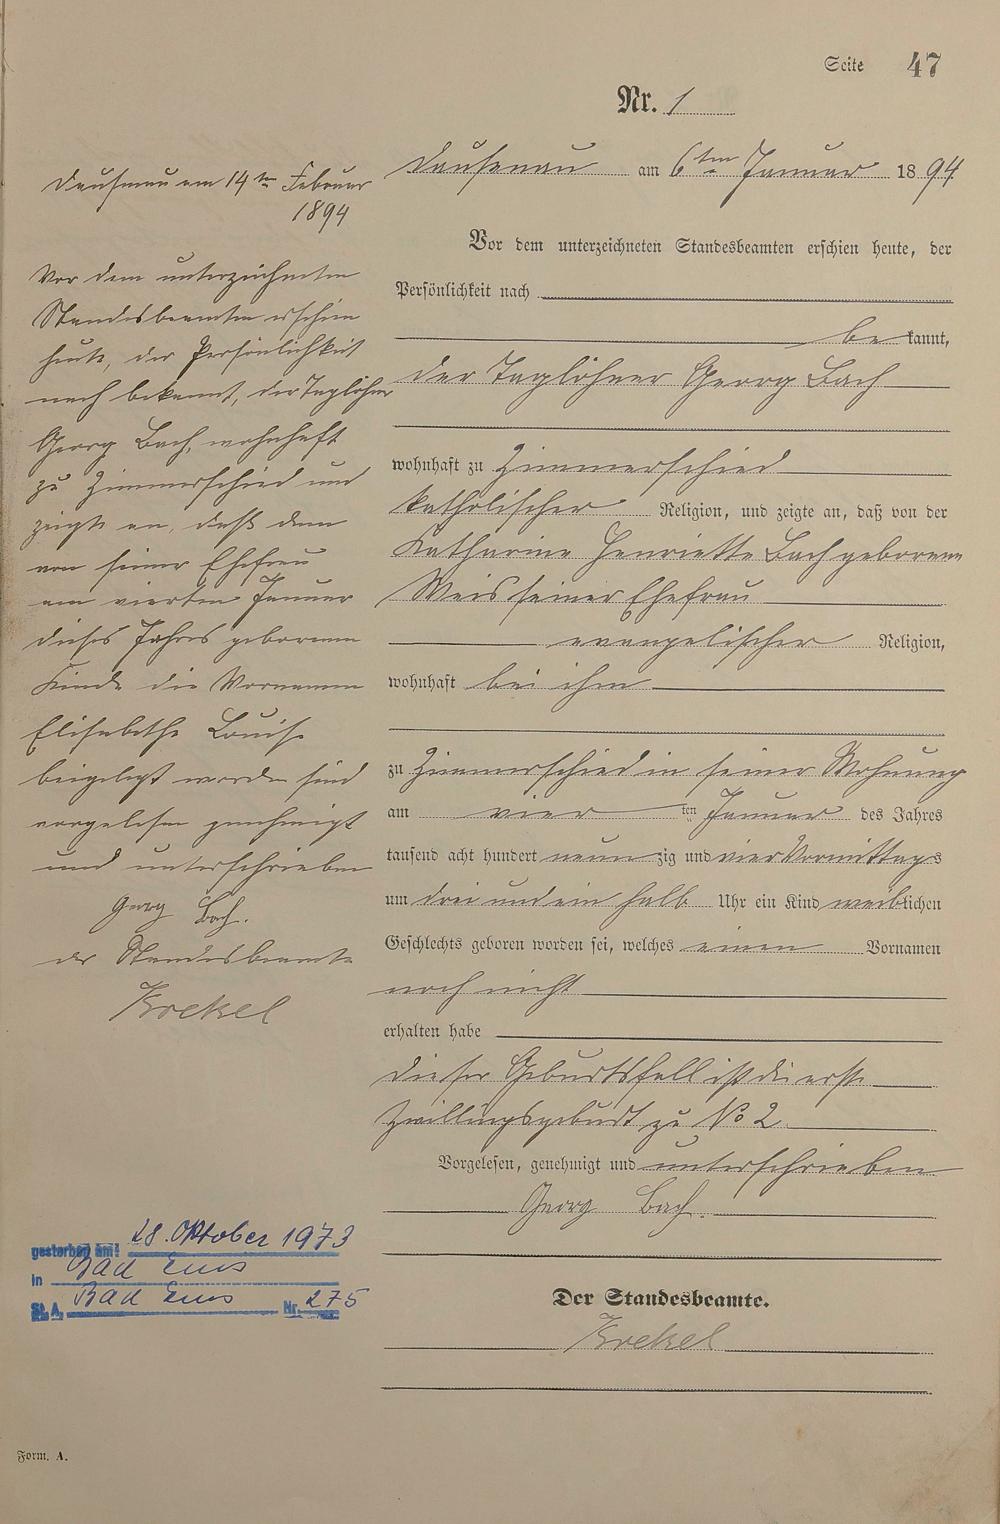 Seite 47
Nr. 1
Dausenau am 6ten Januar 1894
Vor dem unterzeichneten Standesbeamten erschien heute, der
Persönlichkeit nach
be kannt,
der Taglöhner Georg Bach
wohnhaft zu Zimmerschied
katholischer Religion, und zeigte an, daß von der
Katharine Henriette Bach geborenen
Weis seiner Ehefrau
evangelischer Religion,
wohnhaft bei ihm
zu Zimmerschied in seiner Wohnung
am vier ten Januar des Jahres
tausend acht hundert neun zig und vier Vormittags
um drei und ein halb Uhr ein Kind weiblichen
Geschlechts geboren worden sei, welches einen Vornamen
noch nicht
erhalten habe
Dieser Geburtsfall ist die erste
Zwillingsgeburt zu No 2
Vorgelesen, genehmigt und unterschrieben
Georg Bach.
Der Standesbeamte.
Krekel
Dausenau am 14ten Februar
1894
Vor dem unterzeichneten
Standesbeamten erschien
heute, der Persönlichkeit
nach bekannt, der Taglöhner
Georg Bach, wohnhaft
zu Zimmerschied und
zeigte an, daß dem
von seiner Ehefrau
am vierten Januar
dieses Jahres geborenen
Kinde die Vornamen
Elisabethe Louise
beigelegt worden sind
vorgelesen genehmigt
und unterschrieben
Georg Bach.
der Standesbeamte
Krekel
gestorben am: 28. Oktober 1973
in Bad Ems
St. A. Bad Ems Nr. 275
Form. A.